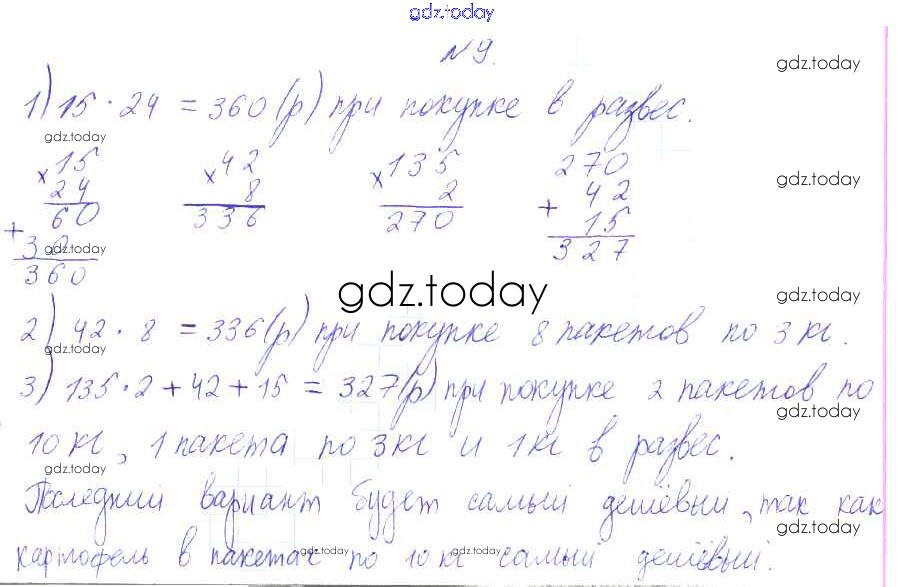 gdz.today
№ 9.
gdz.today
1) 15 · 24 = 360 (р) при покупке в развес.
gdz.today
× 15 × 42 × 135 270
gdz.today
24 8 2 + 42
60 336 270 15
+ 30 327
gdz.today
360
gdz.today
gdz.today
2) 42 · 8 = 336 (р) при покупке 8 пакетов по 3 кг.
gdz.today gdz.today
3) 135 · 2 + 42 + 15 = 327 (р) при покупке 2 пакетов по
gdz.today
10 кг, 1 пакета по 3 кг и 1 кг в развес.
gdz.today gdz.today
Последний вариант будет самый дешёвый, так как
gdz.today
картофель в пакетах по 10 кг самый дешёвый.
gdz.today gdz.today
gdz.today